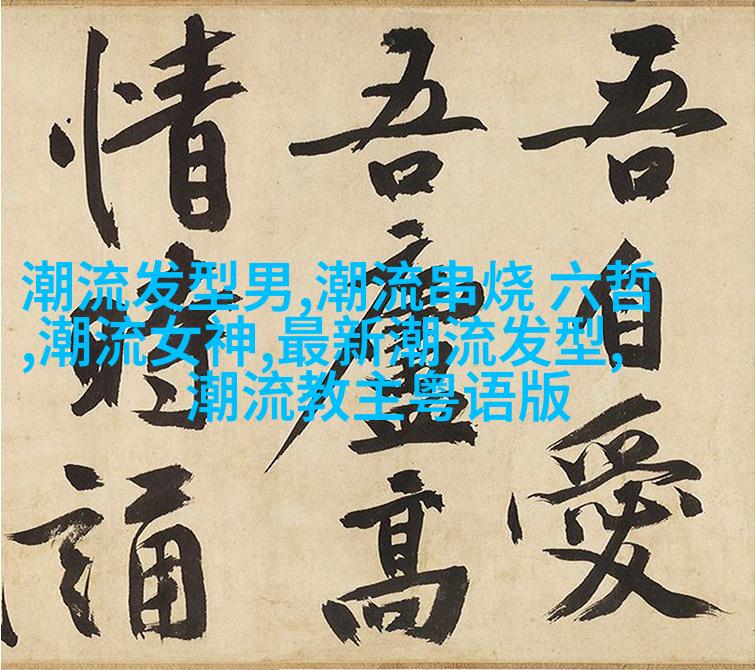 潮流发型男,潮流串烧 六哲
,潮流女神,最新潮流发型,
潮流教主粤语版
吾自愛
吾廬高
情時誦